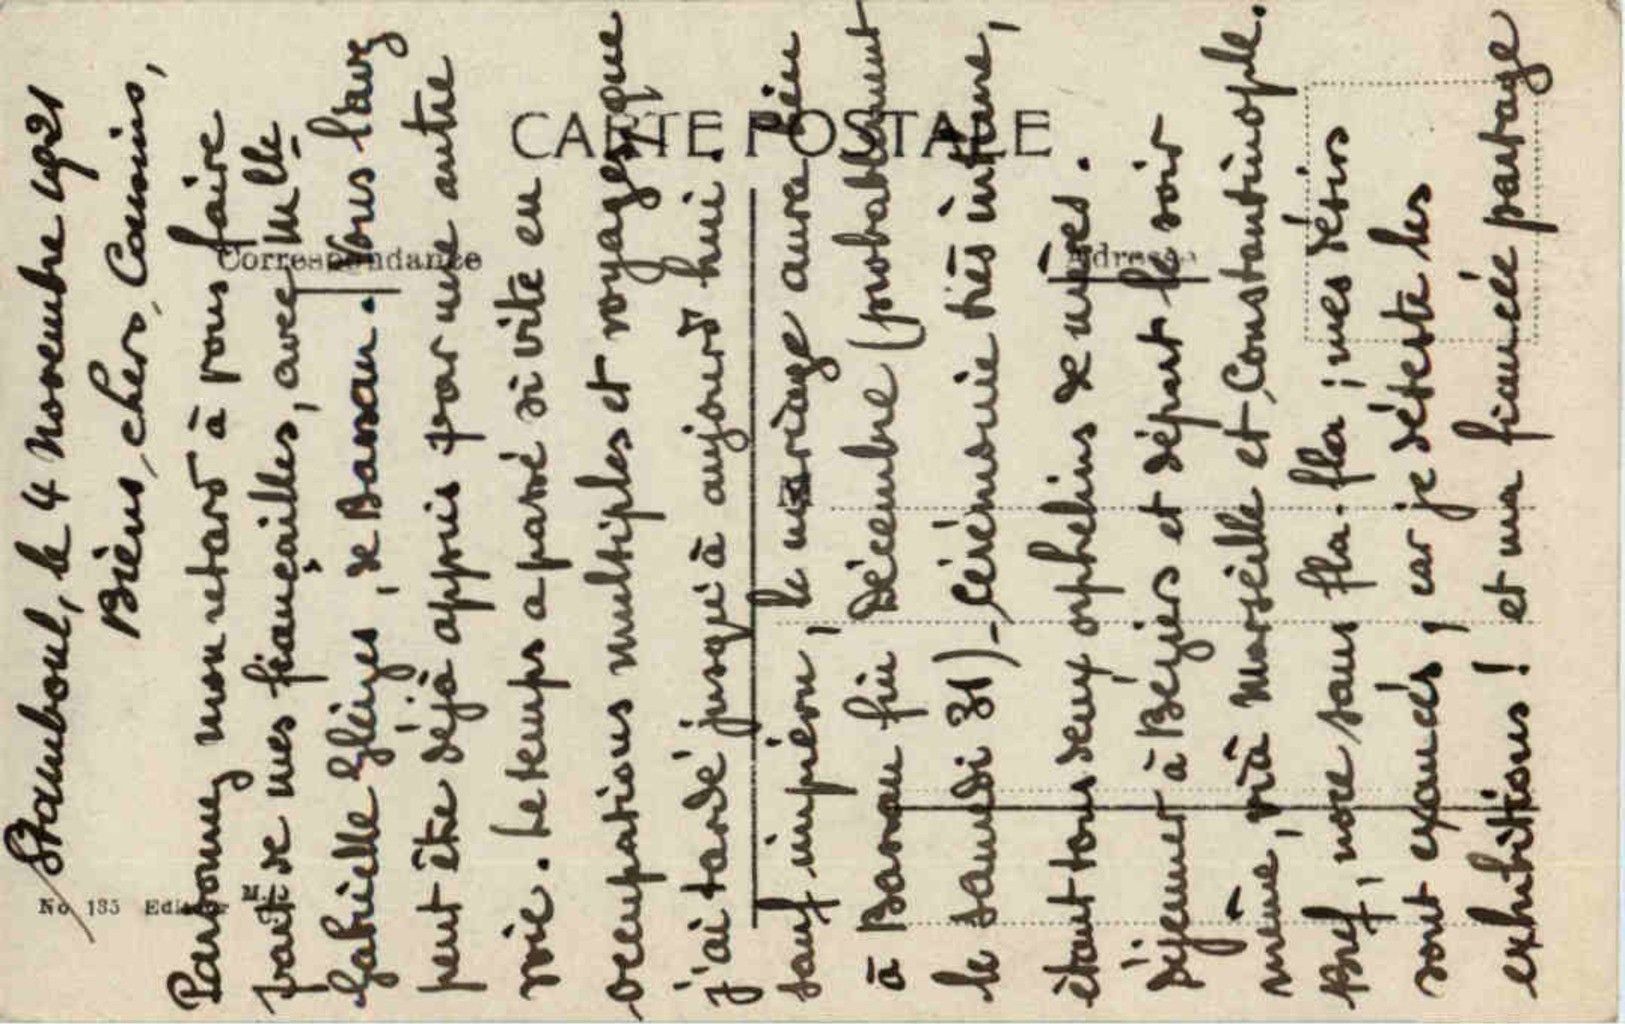 Stamboul, le 4 Novembre 1921
Biens chers Cousins,
Pardonnez mon retard à vous faire
part de mes fiançailles, avec Mlle
Gabrielle Gleizes, de Bassan. Vous l'avez
peut être déjà appris par une autre
voie. Le temps a passé si vite en
occupations multiples et voyages que
j'ai tardé jusqu'à aujourd'hui.
sauf imprévu, le mariage aura lieu
à Bassan fin Décembre (probablement
le samedi 31) - Cérémonie très intime,
étant tous deux orphelins de mères.
Déjeuner à Béziers et départ le soir
même, via Marseille et Constantinople.
Bref, noce sans fla-fla; mes désirs
sont exaucés, car je déteste les
exhibitions! et ma fiancée partage
CARTE POSTALE
Correspondance
Adresse
No 135 Editeur M.